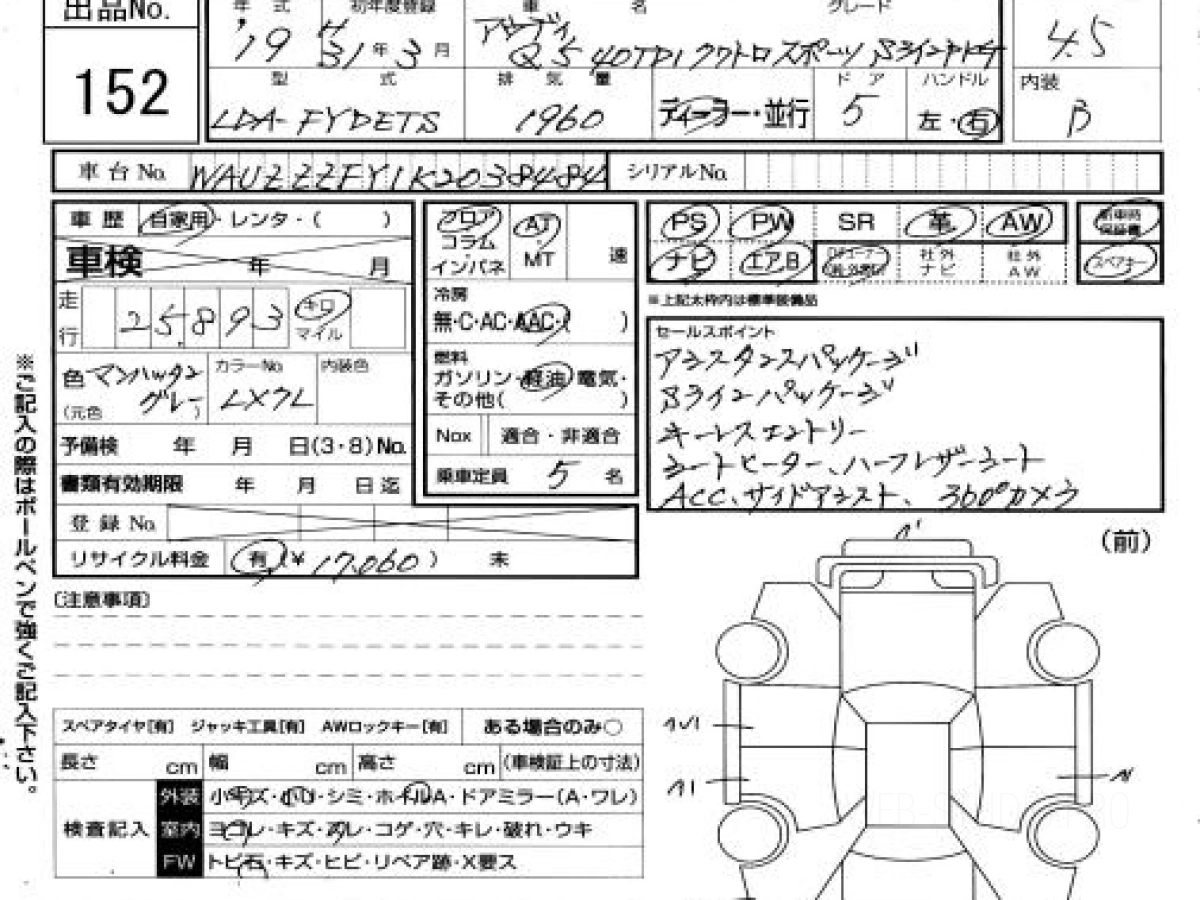 出品No. 年式 初年度登録 車名 グレード
'19 H31年3月 アウディ Q5 40TDI クワトロスポーツ Sライン 4.5
型式 排気量 ドア ハンドル 内装
152 LDA-FYDETS 1960 ディーラー・並行 5 左・右 B
車台No. WAUZZZFY1K2038484 シリアルNo.
車歴 自家用・レンタ・( )
車検 年 月
走行 25,893 キロ マイル
色 マンハッタングレー (元色 ) カラーNo. LX7L 内装色
予備検 年 月 日(3・8)No.
書類有効期限 年 月 日迄
登録No.
リサイクル料金 有(¥17,060) 未
フロア コラム インパネ AT・MT 速
冷房
無・C・AC・AAC・( )
燃料
ガソリン・軽油・電気・
その他( )
Nox 適合・非適合
乗車定員 5 名
PS PW SR 革 AW 新車時保証書
ナビ エアB 社外ナビ 社外AW スペアキー
※上記太枠内は標準装備品
セールスポイント
アシスタンスパッケージ
Sラインパッケージ
キーレスエントリー
シートヒーター、ハーフレザーシート
ACC、サイドアシスト、360°カメラ
(前)
A1
〔注意事項〕
スペアタイヤ[有] ジャッキ工具[有] AWロックキー[有] ある場合のみ○
長さ cm 幅 cm 高さ cm (車検証上の寸法)
検査記入
外装 小キズ・小凹・シミ・ホイルA・ドアミラー(A・ワレ)
室内 ヨゴレ・キズ・スレ・コゲ・穴・キレ・破れ・ウキ
FW トビ石・キズ・ヒビ・リペア跡・X要ス
※ご記入の際はボールペンで強くご記入下さい。